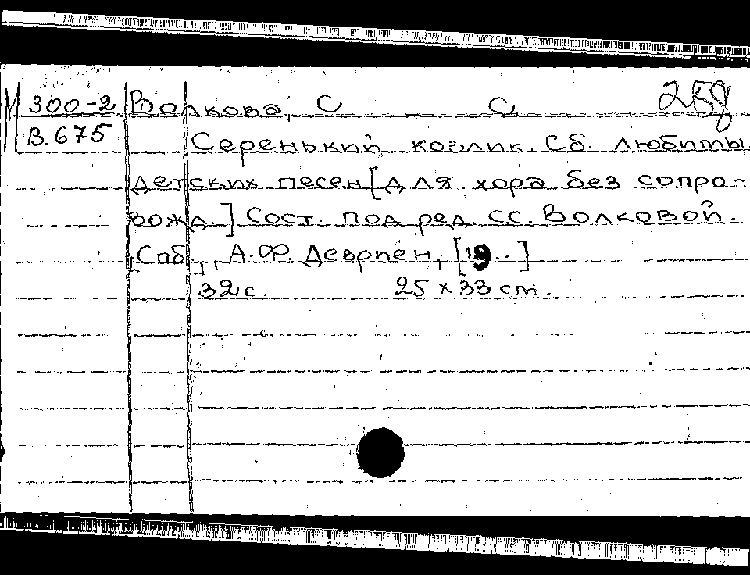 М 300-2 Волкова, С С. 258
В.675 Серенький козлик. Сб. любимы
детских песен [для хора без сопро-
вожд.] Сост. под ред. С.С. Волковой.
Спб., А.Ф. Девриен, [19..]
32 с. 25 × 33 cm.